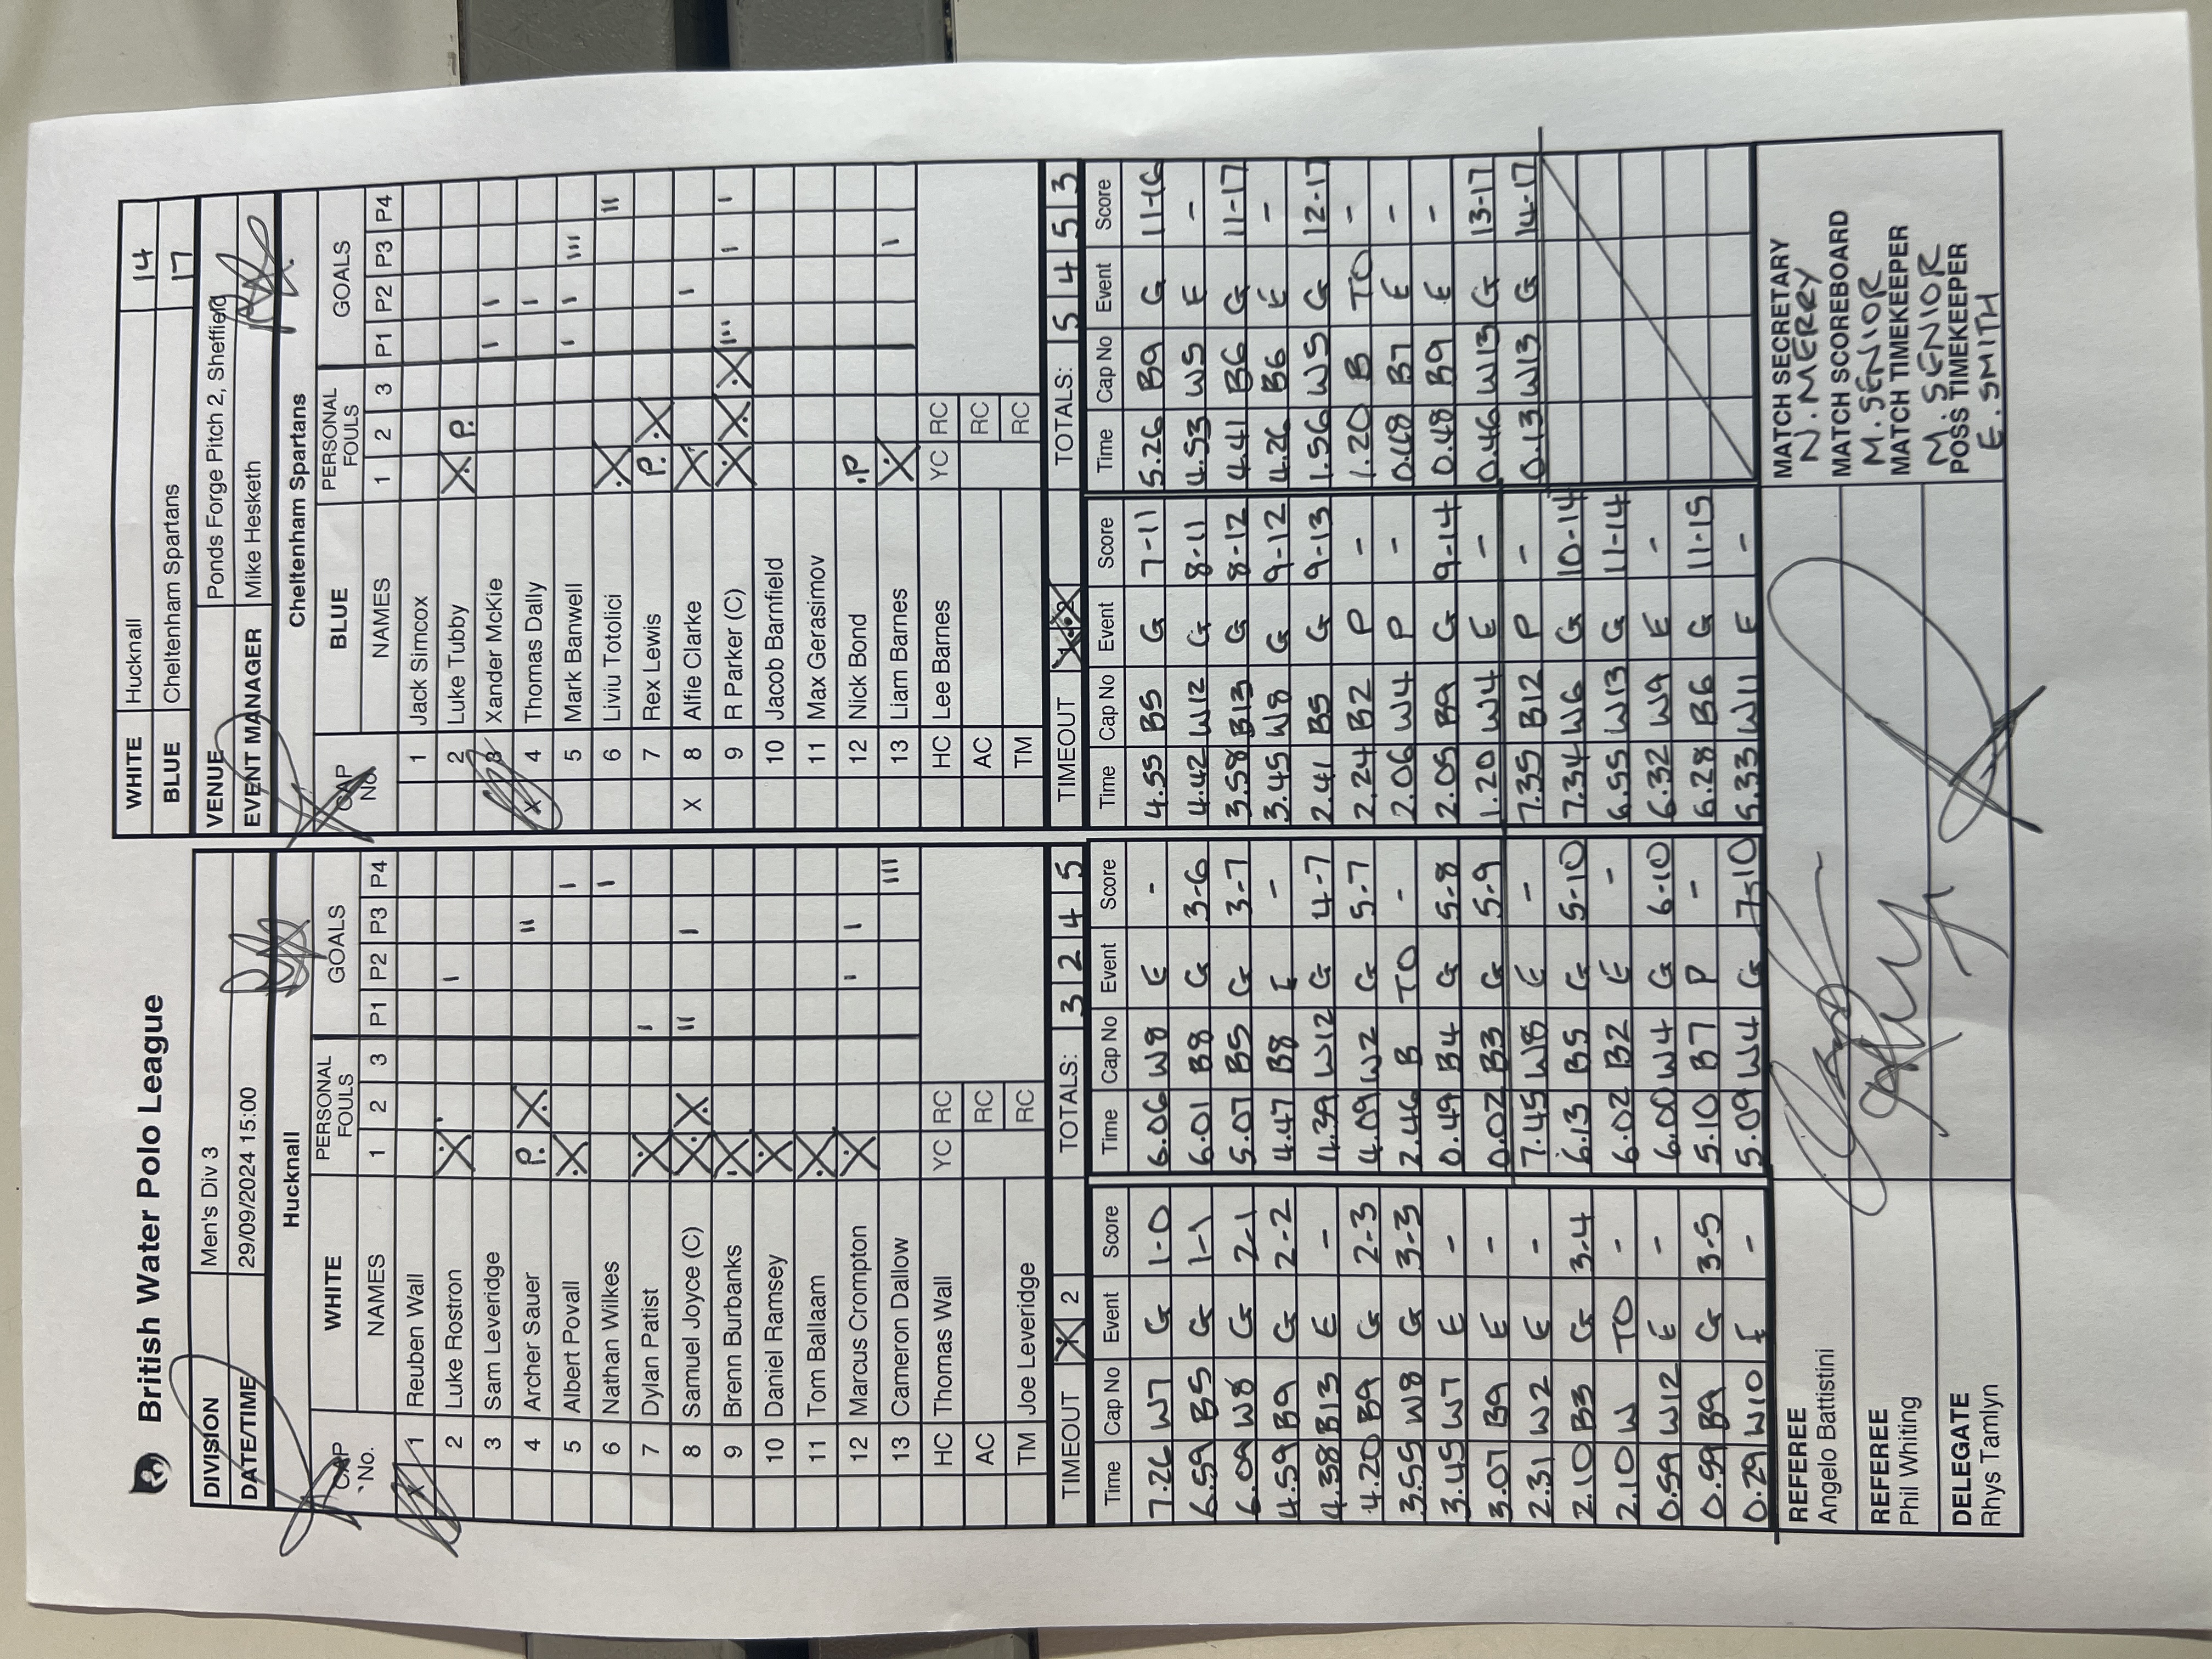 British Water Polo League
WHITE Hucknall 14
BLUE Cheltenham Spartans 17
DIVISION Men's Div 3
DATE/TIME 29/09/2024 15:00
VENUE Ponds Forge Pitch 2, Sheffield
EVENT MANAGER Mike Hesketh
Hucknall
CAP No. WHITE NAMES PERSONAL FOULS 1 2 3 GOALS P1 P2 P3 P4
X 1 Reuben Wall
2 Luke Rostron X I
3 Sam Leveridge
4 Archer Sauer P. X II
5 Albert Povall X I
6 Nathan Wilkes I
7 Dylan Patist X I
8 Samuel Joyce (C) X X II I
9 Brenn Burbanks X
10 Daniel Ramsey X
11 Tom Ballaam X
12 Marcus Crompton X I I
13 Cameron Dallow III
HC Thomas Wall YC RC
AC RC
TM Joe Leveridge RC
TIMEOUT X 2 TOTALS: 3 2 4 5
Cheltenham Spartans
CAP No. BLUE NAMES PERSONAL FOULS 1 2 3 GOALS P1 P2 P3 P4
1 Jack Simcox
2 Luke Tubby X P.
3 Xander McKie I I
X 4 Thomas Dally I
5 Mark Banwell I I III
6 Liviu Totolici X II
7 Rex Lewis P. X
X 8 Alfie Clarke X I
9 R Parker (C) X X X III I I
10 Jacob Barnfield
11 Max Gerasimov
12 Nick Bond .P
13 Liam Barnes X I
HC Lee Barnes YC RC
AC RC
TM RC
TIMEOUT X X TOTALS: 5 4 5 3
Time Cap No Event Score
7.26 W7 G 1-0
6.59 B5 G 1-1
6.09 W8 G 2-1
4.59 B9 G 2-2
4.38 B13 E -
4.20 B9 G 2-3
3.55 W8 G 3-3
3.45 W7 E -
3.07 B9 E -
2.31 W2 E -
2.10 B3 G 3-4
2.10 W TO -
0.59 W12 E -
0.59 B9 G 3-5
0.29 W10 E -
Time Cap No Event Score
6.06 W8 E -
6.01 B8 G 3-6
5.07 B5 G 3-7
4.47 B8 E -
4.39 W12 G 4-7
4.09 W2 G 5-7
2.46 B TO -
0.49 B4 G 5-8
0.02 B3 G 5-9
7.45 W8 E -
6.13 B5 G 5-10
6.02 B2 E -
6.00 W4 G 6-10
5.10 B7 P -
5.09 W4 G 7-10
Time Cap No Event Score
4.55 B5 G 7-11
4.42 W12 G 8-11
3.58 B13 G 8-12
3.45 W8 G 9-12
2.41 B5 G 9-13
2.24 B2 P -
2.06 W4 P -
2.05 B9 G 9-14
1.20 W4 E -
7.35 B12 P -
7.34 W6 G 10-14
6.55 W13 G 11-14
6.32 W9 E -
6.28 B6 G 11-15
5.33 W11 E -
Time Cap No Event Score
5.26 B9 G 11-16
4.53 W5 E -
4.41 B6 G 11-17
4.26 B6 E -
1.56 W5 G 12-17
1.20 B TO -
0.48 B7 E -
0.48 B9 E -
0.46 W13 G 13-17
0.13 W13 G 14-17
REFEREE
Angelo Battistini
REFEREE
Phil Whiting
DELEGATE
Rhys Tamlyn
MATCH SECRETARY
N. MERRY
MATCH SCOREBOARD
M. SENIOR
MATCH TIMEKEEPER
M. SENIOR
POSS TIMEKEEPER
E. SMITH